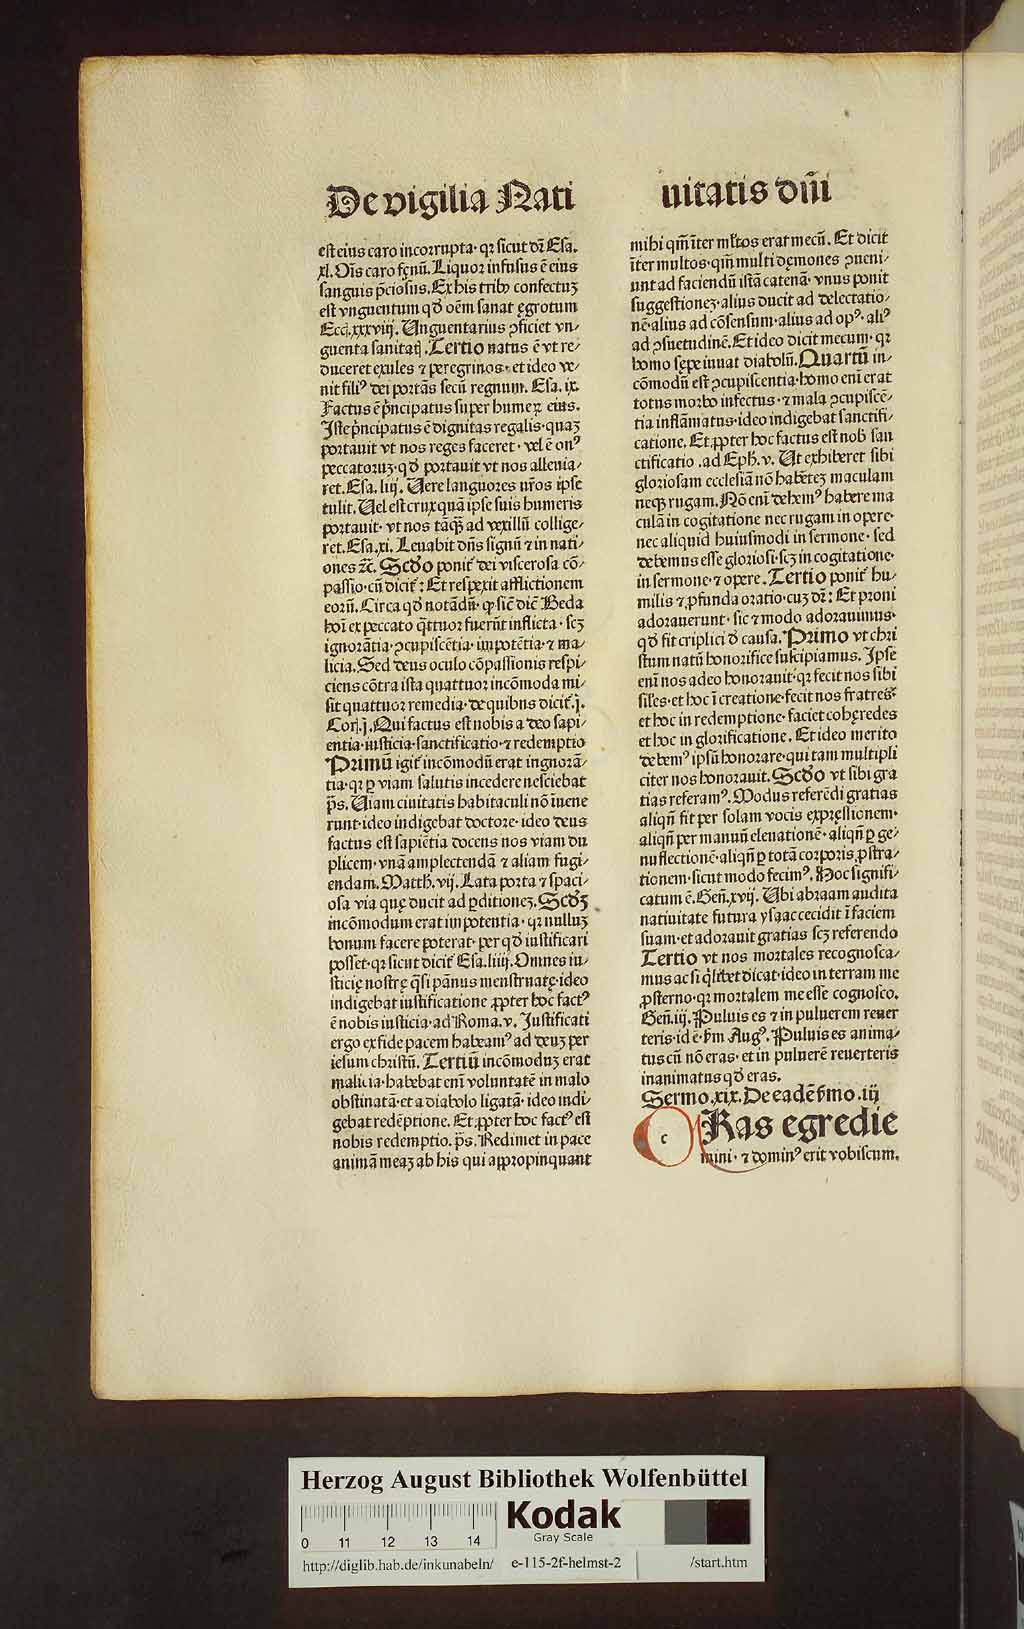 De vigilia Nati
est eius caro incorrupta· qꝛ sicut dr̄ Esa.
xl. Oīs caro fęnū. Liquor infusus ē eius
sanguis p̄ciosus. Ex his tribꝰ confectuꝫ
est vnguentum qd̛ oēm sanat ęgrotum
Eccī.xxxviij. Unguentarius ꝯficiet vn⸗
guenta sanitaꝭ. Tertio natus ē vt re⸗
duceret exules ⁊ peregrinos· et ideo ve⸗
nit filiꝰ dei portās secū regnum. Esa. ix.
Factus ē p̄ncipatus super humeꝝ eius.
Iste p̄ncipatus ē dignitas regalis· quaꝫ
portauit vt nos reges faceret· vel ē onꝰ
peccatoruꝫ· qd̛ portauit vt nos allenia⸗
ret. Esa. liij. Uere languores nr̄os ipse
tulit. Uel est crux quā ipse suis humeris
portauit· vt nos tāqꝫ ad vexillū collige⸗
ret. Esa.xi. Leuabit dn̄s signū ⁊ in nati⸗
ones ⁊c̄. Scd̛o ponit̄ dei viscerosa cō⸗
passio· cū dicit̄: Et respexit afflictionem
eorū. Circa qd̛ notādū· ꝙ sic̄ dic̄ Beda
hoī ex peccato q̄ttuor fuerūt inflicta· scꝫ
ignorātia· ꝯcupiscētia· impotētia· ⁊ ma⸗
licia. Sed deus oculo cōpassionis respi⸗
ciens cōtra ista quattuor incōmoda mi⸗
sit quattuor remedia· de quibus dicit̄.j.
Corī.j. Qui factus est nobis a deo sapi⸗
entia· iusticia· sanctificatio· ⁊ redemptio
Primū igit̄ incōmodū erat ingnorā⸗
tia· qꝛ ꝑ viam salutis incedere nesciebat
p̄s. Uiam ciuitatis habitaculi nō inuene
runt· ideo indigebat doctore· ideo deus
factus est sapiētia docens nos viam du
plicem· vnā amplectendā ⁊ aliam fugi⸗
endam. Matth. vij. Lata porta ⁊ spaci⸗
osa via quę ducit ad ꝑditioneꝫ. Scd̛ꝫ
incōmodum erat impotentia· qꝛ nulluꝫ
bonum facere poterat· per qd̛ iustificari
posset· qꝛ sicut dicit̄ Esa.liiij. Omnes iu⸗
sticię nostrę q̄si pānus menstruatę· ideo
indigebat iustificatione ꝓpter hoc factꝰ
ē nobis iusticia· ad Roma. v. Justificati
ergo ex fide pacem habeamꝰ ad deuꝫ per
iesum christū. Tertiū incōmoduꝫ erat
malicia· habebat enī voluntatē in malo
obstinatā· et a diabolo ligatā· ideo indi⸗
gebat redēptione. Et ꝓpter hoc factꝰ est
nobis redemptio. p̄s. Redimet in pace
animā meaꝫ ab his qui appropinquant
uitatis dn̄i
mihi qm̄ īter ml̄tos erat mecū. Et dicit
īter multos· qm̄ multi dęmones ꝯueni⸗
unt ad faciendū istā catenā· vnus ponit
suggestioneꝫ· alius ducit ad delectatio⸗
nē· alius ad cōsensum· alius ad opꝰ· aliꝰ
ad ꝯsuetudinē. Et ideo dicit mecum· qꝛ
homo sępe iuuat diabolū. Quartū in⸗
cōmodū est ꝯcupiscentia· homo enī erat
totus morbo infectus· ⁊ mala ꝯcupiscē⸗
tia inflāmatus· ideo indigebat sanctifi⸗
catione. Et ꝓpter hoc factus est nob̄ san
ctificatio .ad Eph. v. Ut exhiberet sibi
gloriosam ecclesiā nō habēteꝫ maculam
neqꝫ rugam. Nō enī debemꝰ habere ma
culā in cogitatione nec rugam in opere·
nec aliquid huiusmodi in sermone· sed
debemus esse gloriosi· scꝫ in cogitatione·
in sermone· ⁊ opere. Tertio ponit̄ hu⸗
milis ⁊ ꝓfunda oratio· cuꝫ dr̄: Et proni
adorauerunt· sic ⁊ modo adorauimus·
qd̛ fit triplici d̛ causa. Primo vt chri
stum natū honorifice suscipiamus. Ipse
enī nos adeo honorauit· qꝛ fecit nos sibi
siłes· et hoc ī creatione· fecit nos fratres·
et hoc in redemptione· faciet cohęredes
et hoc in glorificatione. Et ideo merito
debemꝰ ipsū honorare· qui tam multipli
citer nos honorauit. Scd̛o vt sibi gra
tias referamꝰ. Modus referēdi gratias
aliqn̄ fit per solam vocis expressionem·
aliqn̄ per manuū eleuationē· aliqn̄ ꝑ ge⸗
nuflectionē· aliqn̄ ꝑ totā corporis ꝓstra⸗
tionem· sicut modo fecimꝰ. Hoc signifi⸗
catum ē. Gen̄.xvij. Ubi abraam audita
natiuitate futura ysaac cecidit ī faciem
suam· et adorauit gratias scꝫ referendo
Tertio vt nos mortales recognosca⸗
mus ac si q̄libet dicat· ideo in terram me
ꝓsterno· qꝛ mortalem me esse cognosco.
Gen̄.iij. Puluis es ⁊ in puluerem reuer
teris· id ē· ẜm Augꝰ. Puluis es anima⸗
tus cū nō eras· et in puluerē reuerteris
inanimatus qd̛ eras.
Sermo.xix. De eadē ẜmo .iij
c Ras egredie
mini· ⁊ dominꝰ erit vobiscum.
Herzog August Bibliothek Wolfenbüttel
0 11 12 13 14
Kodak
Gray Scale
http://diglib.hab.de/inkunabeln/ e-115-2f-helmst-2 /start.htm